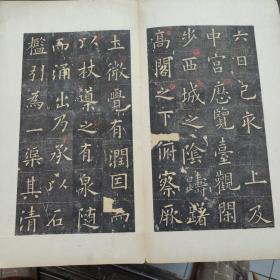 六日己亥上及
中宮歷覽臺觀閑
步西城之陰躊躇
高閣之下俯察厥
土微覺有潤因而
以杖導之有泉隨
而涌出乃承以石
檻引為一渠其清